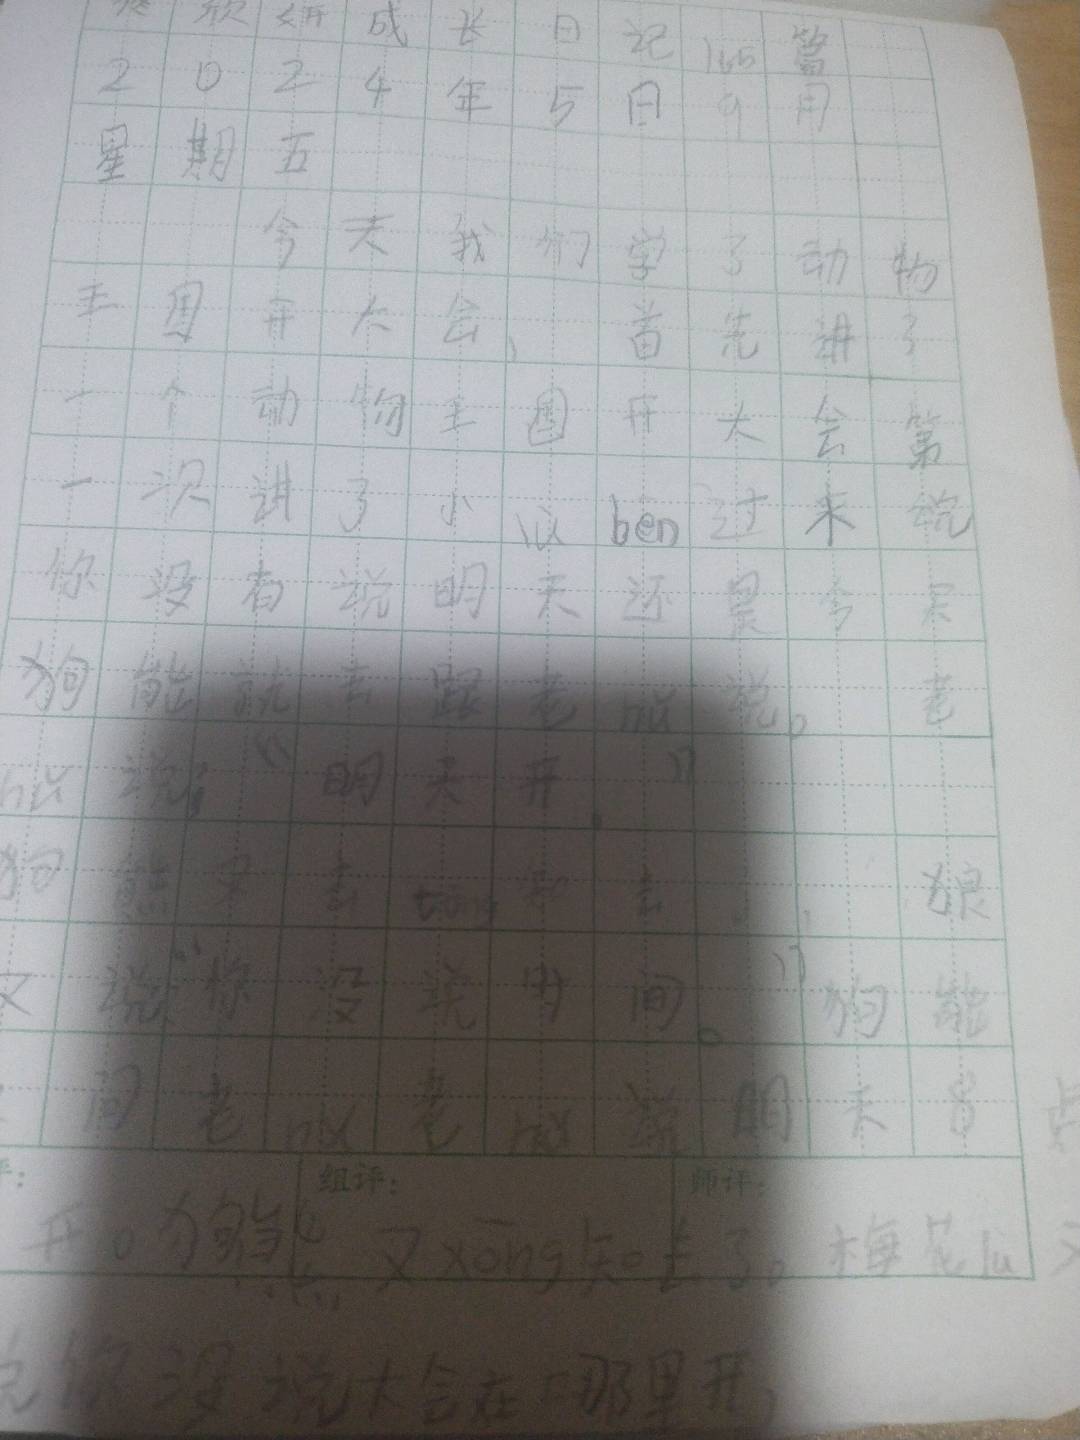 欣妍成长日记165篇
2024年5月9日
星期五
今天我们学了动物
王国开大会、首先讲了
一个动物王国开大会第
一次讲了小以ben过来说
你没有说明天还是今天
狗能就去跟老hu说。老
hu说："明天开."
狗熊又去tong知去了.狼
又说"你没说时间。"狗能
问老hu老hu说明天8点
开。狗熊又xōng知去了。梅花lu又
说你没说大会在哪里开,
组评:
师评: